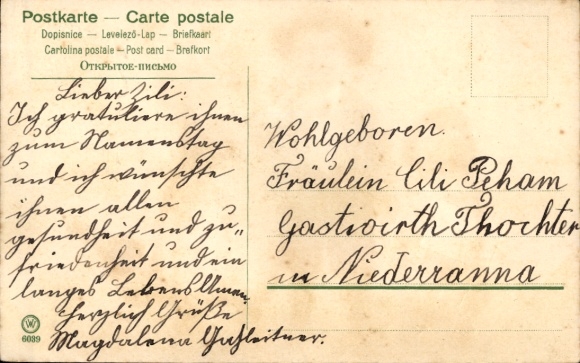 Postkarte — Carte postale
Dopisnice — Levelező-Lap — Briefkaart
Cartolina postale — Post card — Brefkort
Открытое-письмо
Lieber Zili:
Ich gratuliere ihnen
zum Namenstag
und ich wünschte
ihnen allen
gesundheit und zu„
friedenheit und ein
langes Lebens Amen.
herzlich Grüße
Magdalena
W
6039
Wohlgeboren.
Fräulein Cili Peham
Gastwirth Thochter
in Niederranna